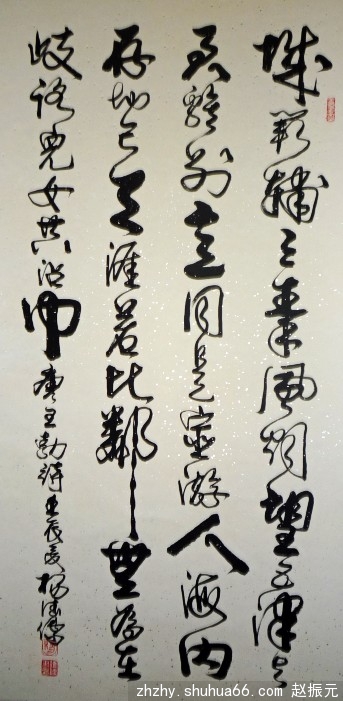 城阙辅三秦风烟望五津与
君离别意同是宦游人海内
存知己天涯若比邻无为在
歧路儿女共沾巾唐王勃诗壬辰夏
zhzhy.shuhua66.com 赵振元